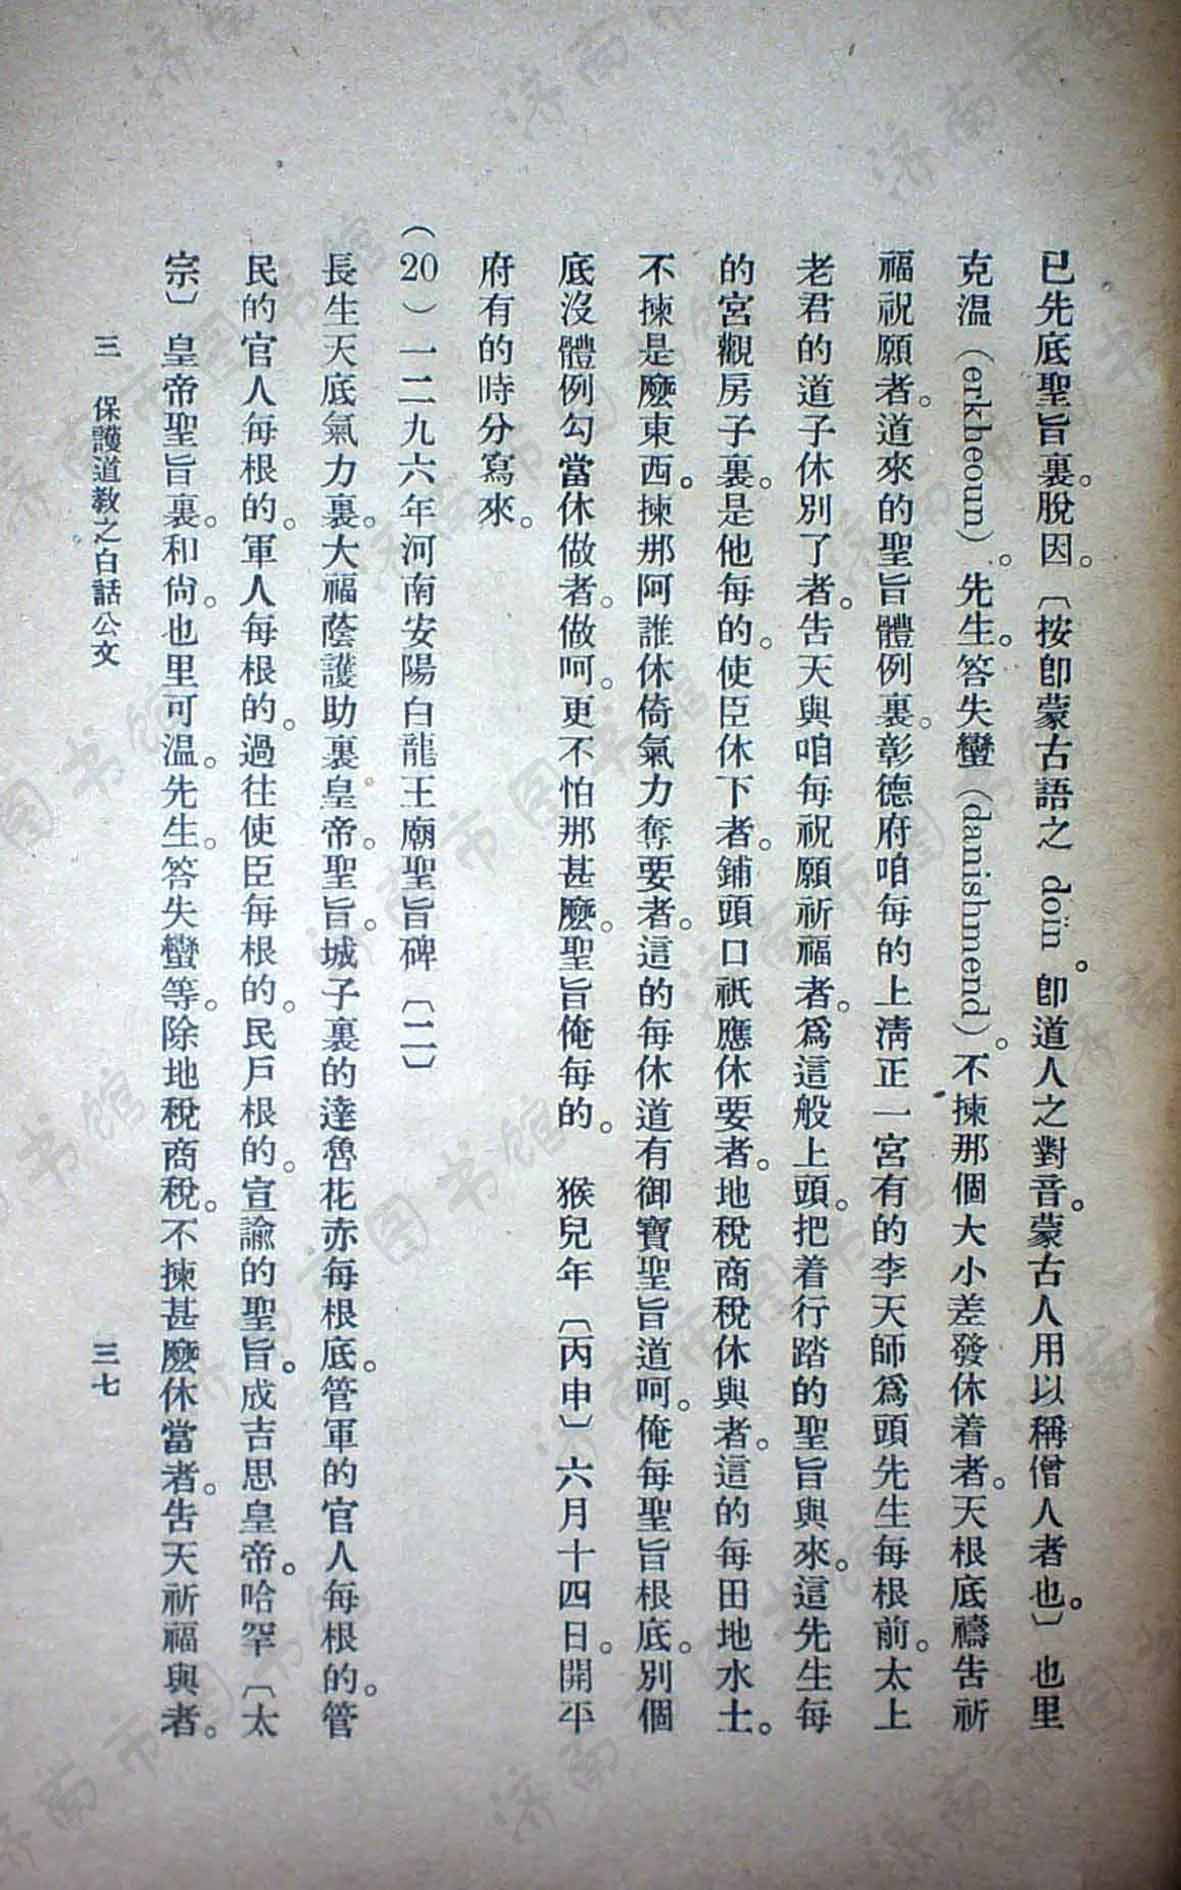 已先底聖旨裏。脫因。〔按卽蒙古語之 doïn。卽道人之對音。蒙古人用以稱僧人者也。〕也里
克溫（erkheoun）。先生。答失蠻（danishmend）。不揀那個大小差發休着者。天根底禱吿祈
福祝願者。道來的聖旨體例裏。彰德府咱每的上淸正一宮有的李天師爲頭先生每根前。太上
老君的道子休別了者。吿天與咱每祝願祈福者。爲這般上頭。把着行踏的聖旨與來。這先生每
的宮觀房子裏。是他每的。使臣休下者。鋪頭口祇應休要者。地稅商稅休與者。這的每田地水土。
不揀是麼東西。揀那阿誰休倚氣力奪要者。這的每休道有御寶聖旨道呵。俺每聖旨根底。別個
底沒體例勾當休做者。做呵。更不怕那甚麼。聖旨俺每的。　猴兒年〔丙申〕六月十四日。開平
府有的時分寫來。
（20）一二九六年河南安陽白龍王廟聖旨碑〔二〕
長生天底氣力裏。大福蔭護助裏。皇帝。聖旨。城子裏的達魯花赤每根底。管軍的官人每根的。管
民的官人每根的。軍人每根的。過往使臣每根的。民戶根的。宣諭的聖旨。成吉思皇帝。哈罕〔太
宗〕皇帝聖旨裏。和尙。也里可溫。先生。答失蠻等。除地稅商稅。不揀甚麼休當者。吿天祈福與者。
三　保護道敎之白話公文　三七
濟南市图书馆